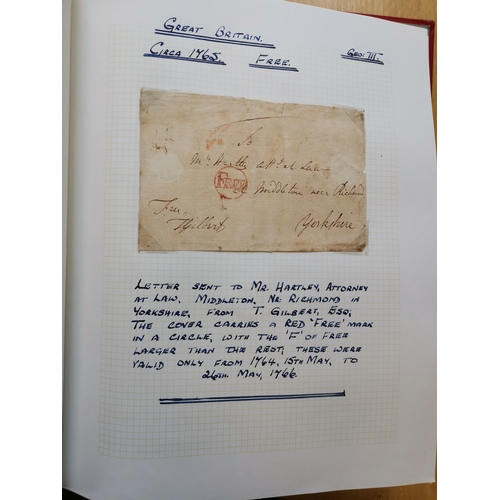 GREAT BRITAIN.
CIRCA 1765. FREE. GEO: III.
To
Mr. Hartley At at Law
FREE
Middleton near Richmond
Free
TGilbert
Yorkshire
LETTER SENT TO MR. HARTLEY, ATTORNEY
AT LAW, MIDDLETON, NR: RICHMOND IN
YORKSHIRE, FROM T. GILBERT, ESQ;
THE COVER CARRIES A RED 'FREE' MARK
IN A CIRCLE, WITH THE 'F' OF FREE
LARGER THAN THE REST; THESE WERE
VALID ONLY FROM 1764, 15TH MAY, TO
26TH. MAY, 1766.